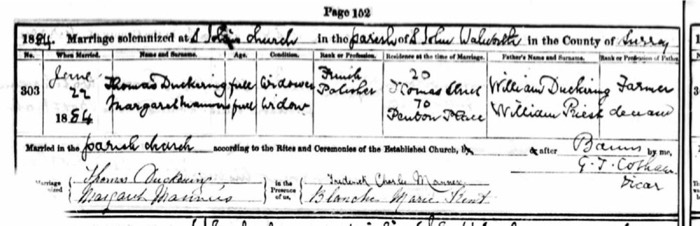 Page 152
1884. Marriage solemnized at S John's church in the parish of S John Walworth in the County of Surrey
No. When Married. Name and Surname. Age. Condition. Rank or Profession. Residence at the time of Marriage. Father's Name and Surname. Rank or Profession of Father
303 June 22 1884
Thomas Duckering full Widower French Polisher 20 Thomas Street William Duckering Farmer
Margaret Manners full Widow 70 Penton Place William Priest
Married in the parish church according to the Rites and Ceremonies of the Established Church, by & after Banns by me,
G. T. Cotham
Vicar
Marriage
Thomas Duckering
Margaret Manners
in the Presence of us,
Frederick Charles Manners
Blanche Marie Kent